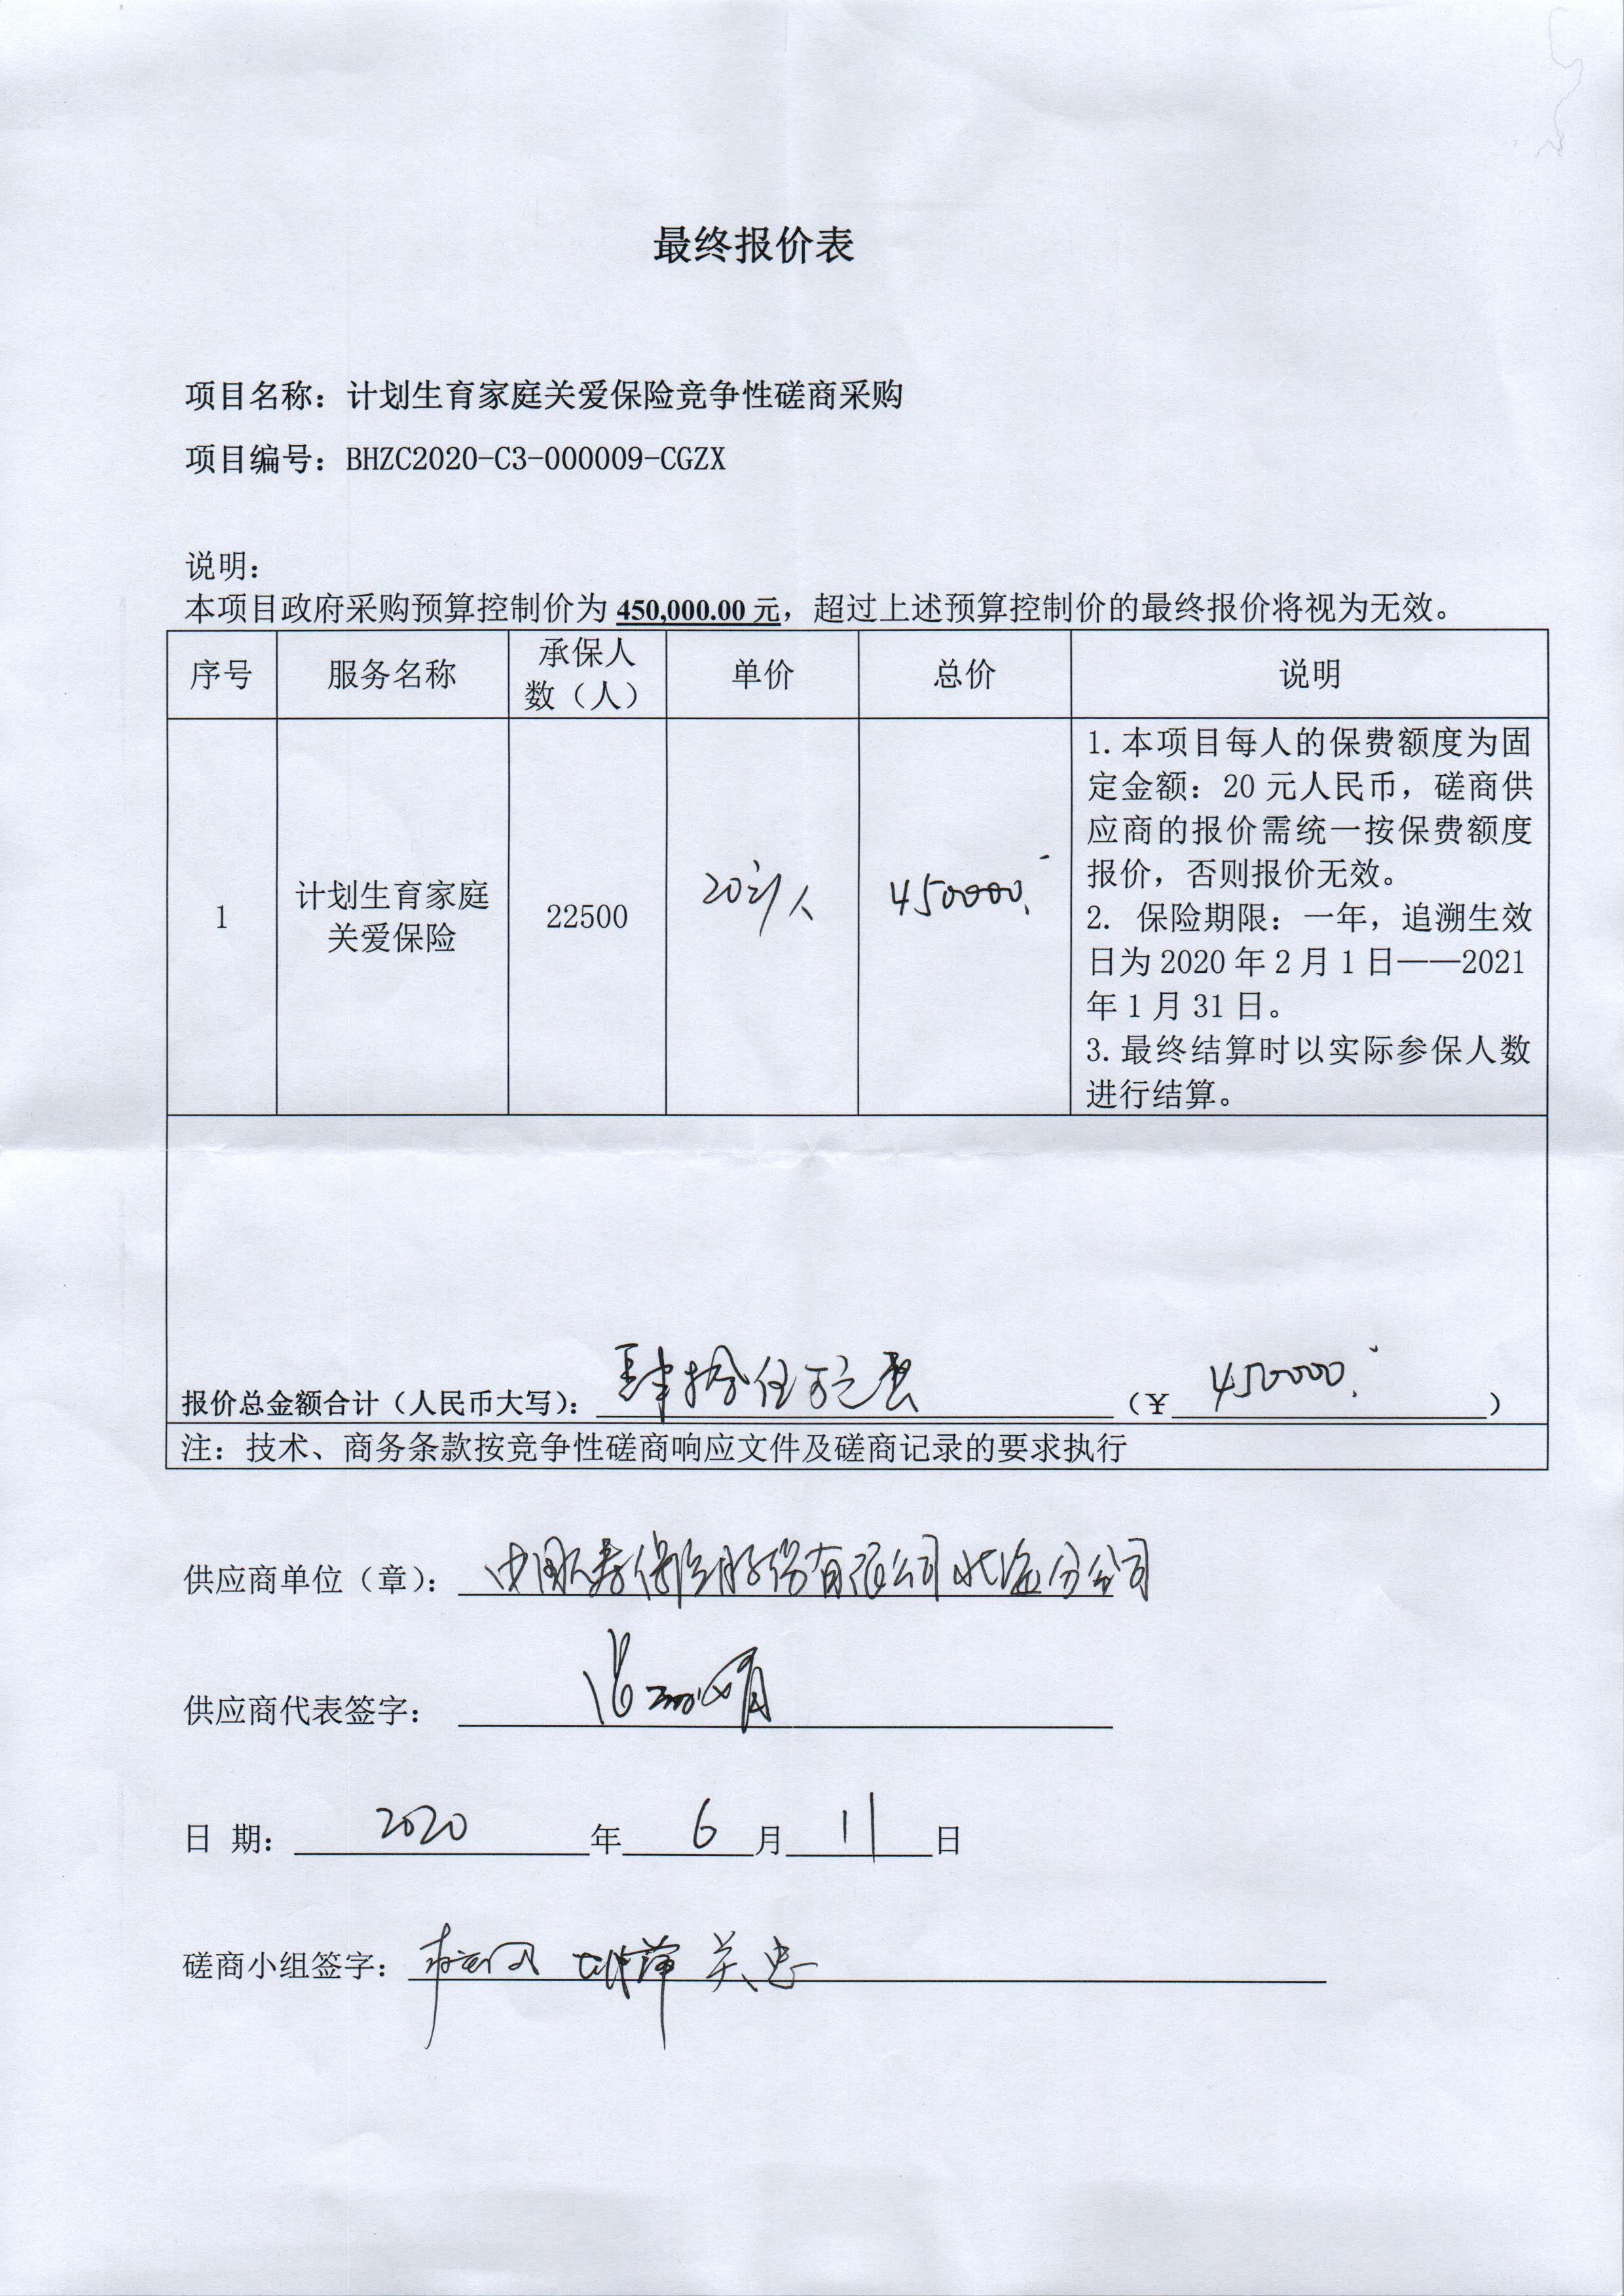 最终报价表
项目名称：计划生育家庭关爱保险竞争性磋商采购
项目编号：BHZC2020-C3-000009-CGZX
说明：
本项目政府采购预算控制价为 450,000.00 元，超过上述预算控制价的最终报价将视为无效。
序号 服务名称 承保人数（人） 单价 总价 说明
1 计划生育家庭关爱保险 22500 20元/人 450000.-
1.本项目每人的保费额度为固
定金额：20 元人民币，磋商供
应商的报价需统一按保费额度
报价，否则报价无效。
2. 保险期限：一年，追溯生效
日为 2020 年 2 月 1 日——2021
年 1 月 31 日。
3.最终结算时以实际参保人数
进行结算。
报价总金额合计（人民币大写）：肆拾伍万元整 （¥ 450000.- ）
注：技术、商务条款按竞争性磋商响应文件及磋商记录的要求执行
供应商单位（章）：中国人寿保险股份有限公司北海分公司
供应商代表签字：
日 期：2020 年 6 月 11 日
磋商小组签字：